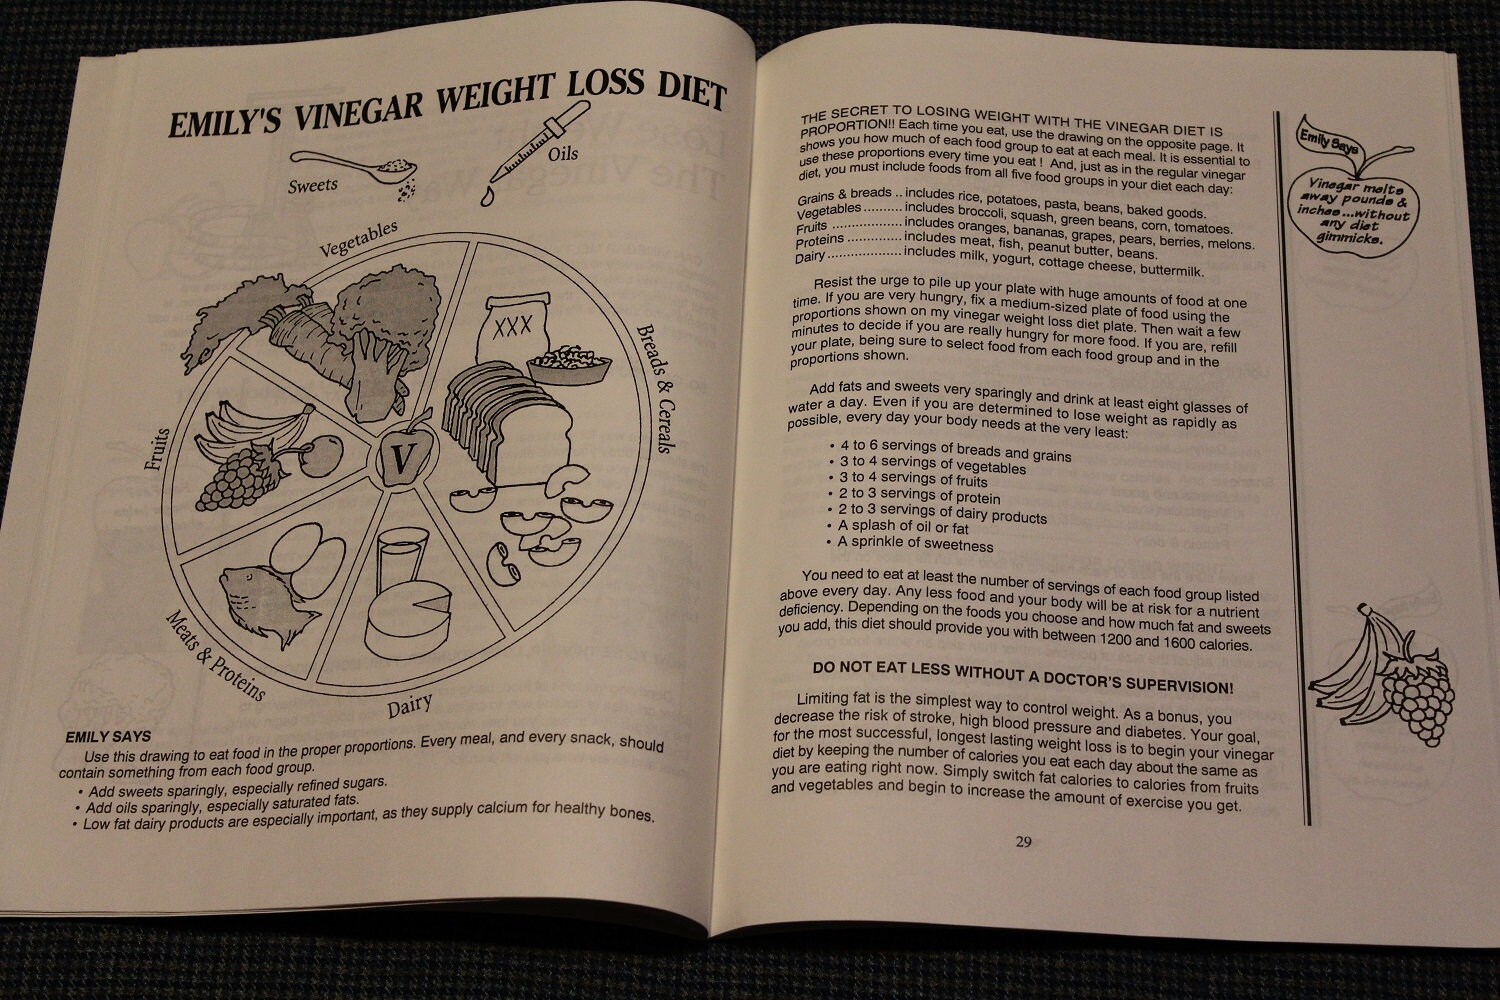 EMILY'S VINEGAR WEIGHT LOSS DIET
Sweets
Oils
Vegetables
Breads & Cereals
XXX
Fruits
V
Meats & Proteins
Dairy
EMILY SAYS
Use this drawing to eat food in the proper proportions. Every meal, and every snack, should
contain something from each food group.
• Add sweets sparingly, especially refined sugars.
• Add oils sparingly, especially saturated fats.
• Low fat dairy products are especially important, as they supply calcium for healthy bones.
THE SECRET TO LOSING WEIGHT WITH THE VINEGAR DIET IS
PROPORTION!! Each time you eat, use the drawing on the opposite page. It
shows you how much of each food group to eat at each meal. It is essential to
use these proportions every time you eat ! And, just as in the regular vinegar
diet, you must include foods from all five food groups in your diet each day:
Grains & breads .. includes rice, potatoes, pasta, beans, baked goods.
Vegetables .......... includes broccoli, squash, green beans, corn, tomatoes.
Fruits .................. includes oranges, bananas, grapes, pears, berries, melons.
Proteins .............. includes meat, fish, peanut butter, beans.
Dairy ................... includes milk, yogurt, cottage cheese, buttermilk.
Resist the urge to pile up your plate with huge amounts of food at one
time. If you are very hungry, fix a medium-sized plate of food using the
proportions shown on my vinegar weight loss diet plate. Then wait a few
minutes to decide if you are really hungry for more food. If you are, refill
your plate, being sure to select food from each food group and in the
proportions shown.
Add fats and sweets very sparingly and drink at least eight glasses of
water a day. Even if you are determined to lose weight as rapidly as
possible, every day your body needs at the very least:
• 4 to 6 servings of breads and grains
• 3 to 4 servings of vegetables
• 3 to 4 servings of fruits
• 2 to 3 servings of protein
• 2 to 3 servings of dairy products
• A splash of oil or fat
• A sprinkle of sweetness
You need to eat at least the number of servings of each food group listed
above every day. Any less food and your body will be at risk for a nutrient
deficiency. Depending on the foods you choose and how much fat and sweets
you add, this diet should provide you with between 1200 and 1600 calories.
DO NOT EAT LESS WITHOUT A DOCTOR'S SUPERVISION!
Limiting fat is the simplest way to control weight. As a bonus, you
decrease the risk of stroke, high blood pressure and diabetes. Your goal,
for the most successful, longest lasting weight loss is to begin your vinegar
diet by keeping the number of calories you eat each day about the same as
you are eating right now. Simply switch fat calories to calories from fruits
and vegetables and begin to increase the amount of exercise you get.
29
Emily Says
Vinegar melts
away pounds &
inches...without
any diet
gimmicks.